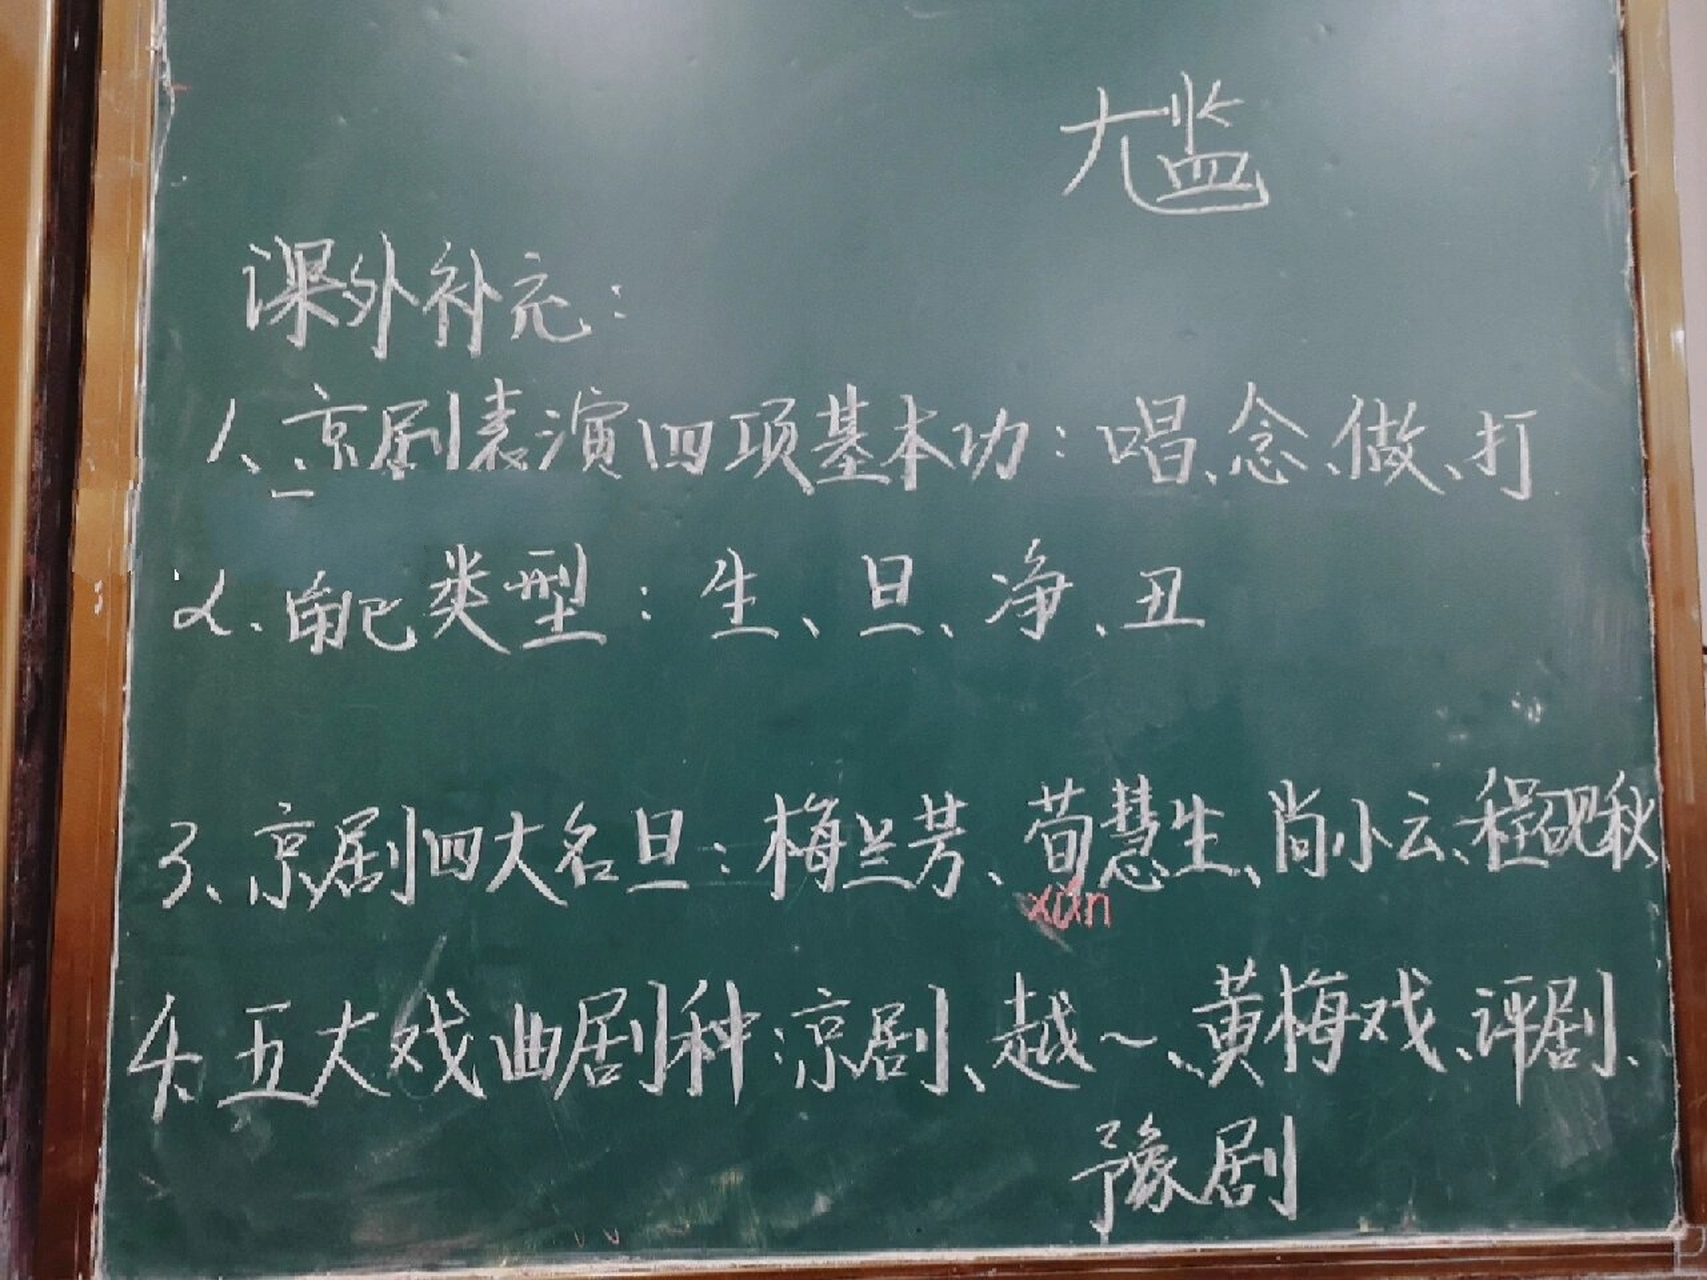 尴
课外补充：
1、京剧表演四项基本功：唱、念、做、打
2、角色类型：生、旦、净、丑
3、京剧四大名旦：梅兰芳、荀慧生、尚小云、程砚秋
xún
4、五大戏曲剧种：京剧、越～、黄梅戏、评剧、
豫剧